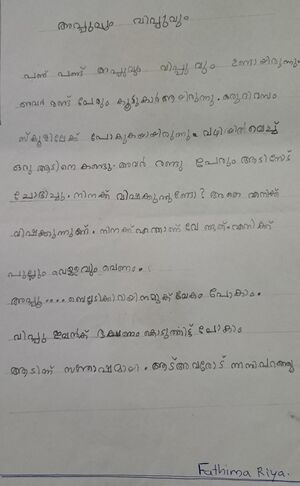 അപ്പുവും വിപ്പുവും
പണ്ട് പണ്ട് അപ്പുവും വിപ്പുവും ഉണ്ടായിരുന്നു.
അവർ രണ്ട് പേരും കൂട്ടുകാർ ആയിരുന്നു. ഒരു ദിവസം
സ്കൂളിലേക്ക് പോകുകയായിരുന്നു. വഴിയിൽ വെച്ച്
ഒരു ആടിനെ കണ്ടു. അവർ രണ്ടു പേരും ആടിനോട്
ചോദിച്ചു. നിനക്ക് വിഷക്കുന്നുണ്ടോ? അതെ എനിക്ക്
വിഷക്കുന്നുണ്ട്. നിനക്ക് എന്താണ് വേണ്ടത്. എനിക്ക്
പുല്ലും വെള്ളവും വേണം.
അപ്പൂ.... ബെല്ലടിക്കാറായി നമുക്ക് വേഗം പോകാം.
വിപ്പു ഇവൻക് ഭക്ഷണം കൊടുത്തിട്ട് പോകാം
ആടിന് സന്തോഷമായി. ആട് അവരോട് നന്ദി പറഞ്ഞു
Fathima Riya.